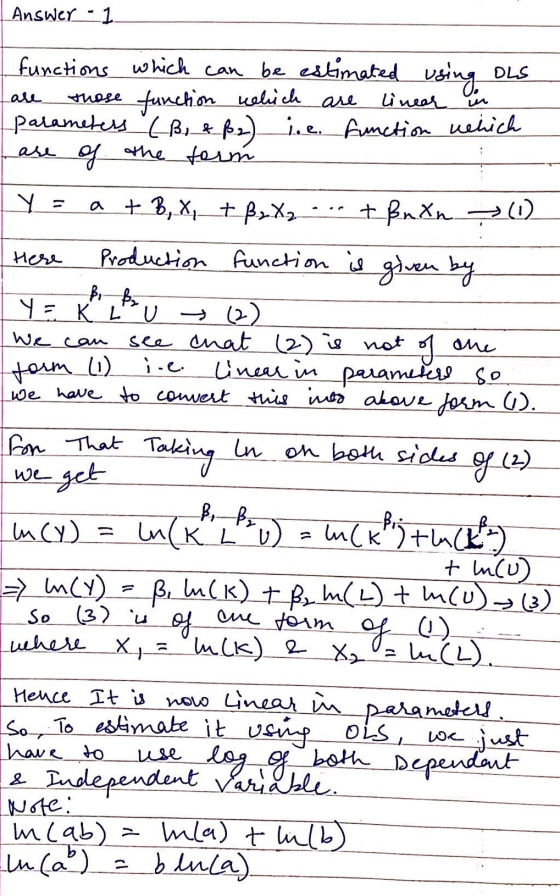 Answer - 1
functions which can be estimated using OLS
are those function which are linear in
parameters (β₁ & β₂) i.e. function which
are of the form
Y = a + β₁X₁ + β₂X₂ --- + βnXn → (1)
Here Production function is given by
Y = K^β₁ L^β₂ U → (2)
We can see that (2) is not of the
form (1) i.e. linear in parameters so
we have to convert this into above form (1).
For That Taking ln on both sides of (2)
we get
ln(Y) = ln(K^β₁ L^β₂ U) = ln(K^β₁) + ln(L^β₂)
+ ln(U)
⇒ ln(Y) = β₁ ln(K) + β₂ ln(L) + ln(U) → (3)
So (3) is of the form of (1)
where X₁ = ln(K) & X₂ = ln(L).
Hence It is now Linear in parameters.
So, To estimate it using OLS, we just
have to use log of both Dependant
& Independent Variable.
Note:
ln(ab) = ln(a) + ln(b)
ln(a^b) = b ln(a)